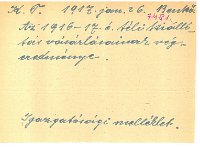 K. T. 1917. jan. 26. Benkő.
7481.
Az 1916-17. é. téli kiállí-
tás vásárlásainak vég-
eredménye.
Igazgatósági melléklet.